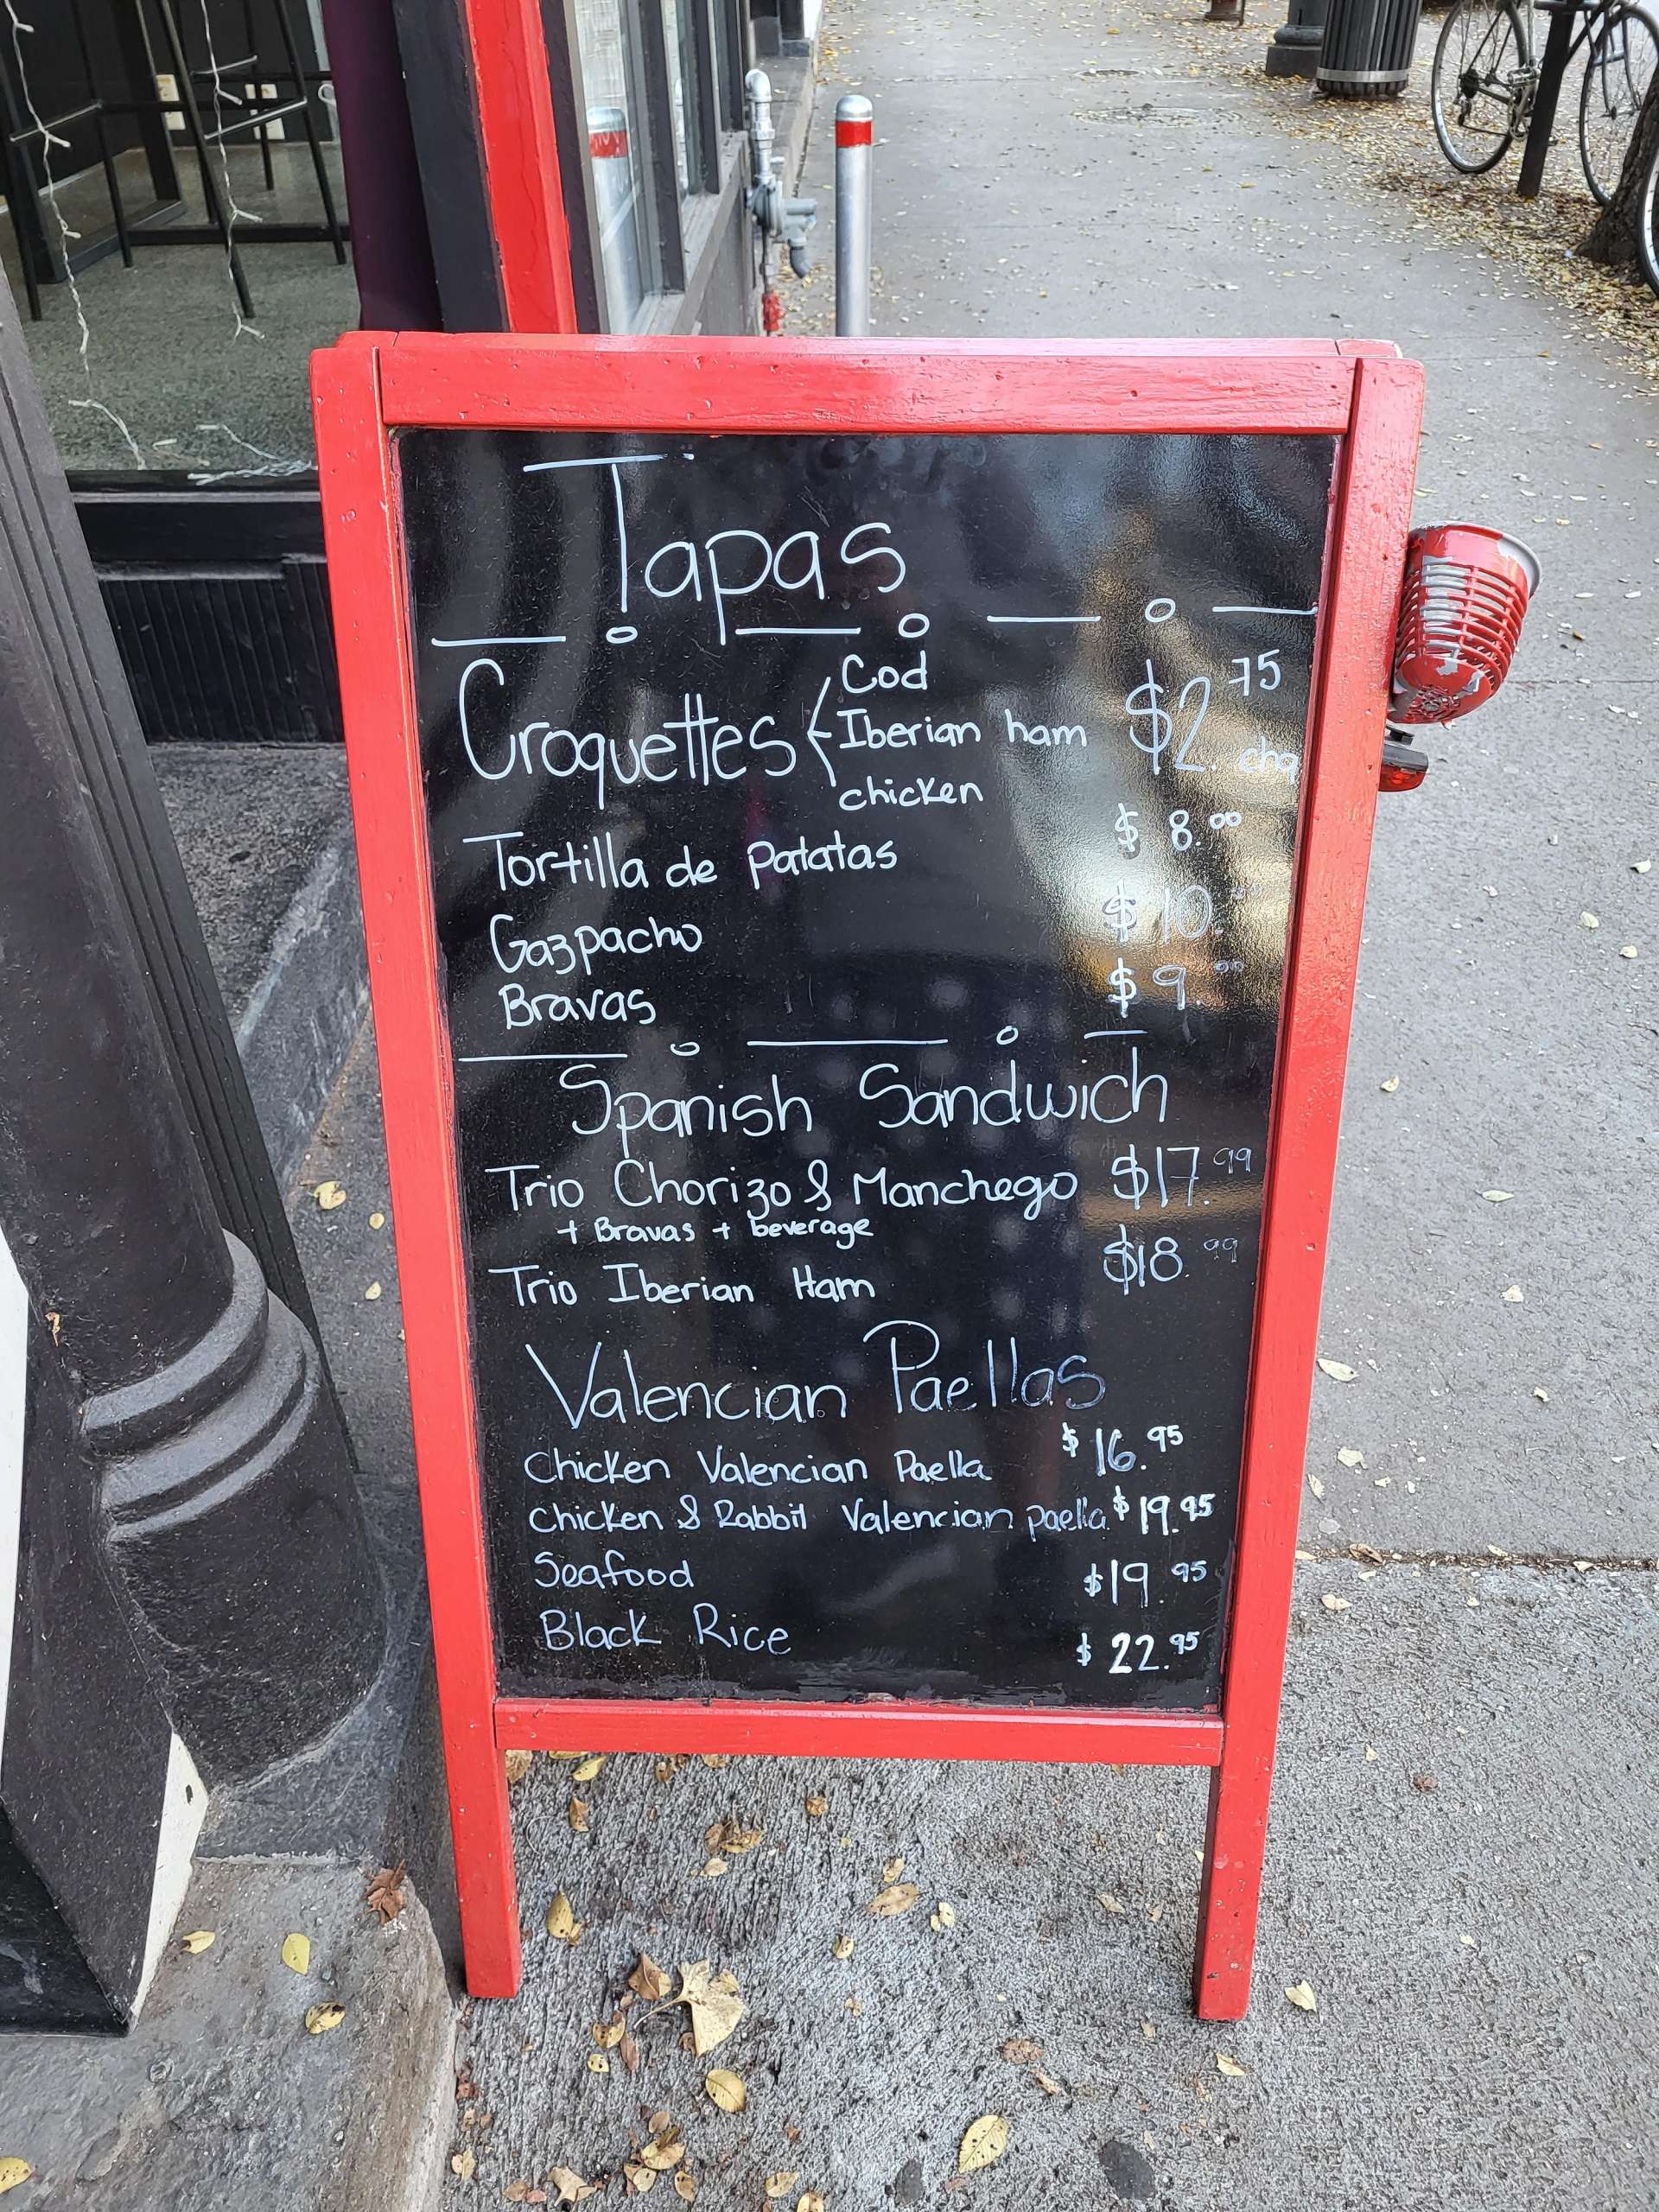 Tapas
Croquettes Cod
Iberian ham $2.75 chq
chicken
Tortilla de patatas $8.00
Gazpacho $10.00
Bravas $9.00
Spanish Sandwich
Trio Chorizo & Manchego $17.99
+ Bravas + beverage
Trio Iberian Ham $18.99
Valencian Paellas
Chicken Valencian Paella $16.95
Chicken & Rabbit Valencian paella $19.95
Seafood $19.95
Black Rice $22.95